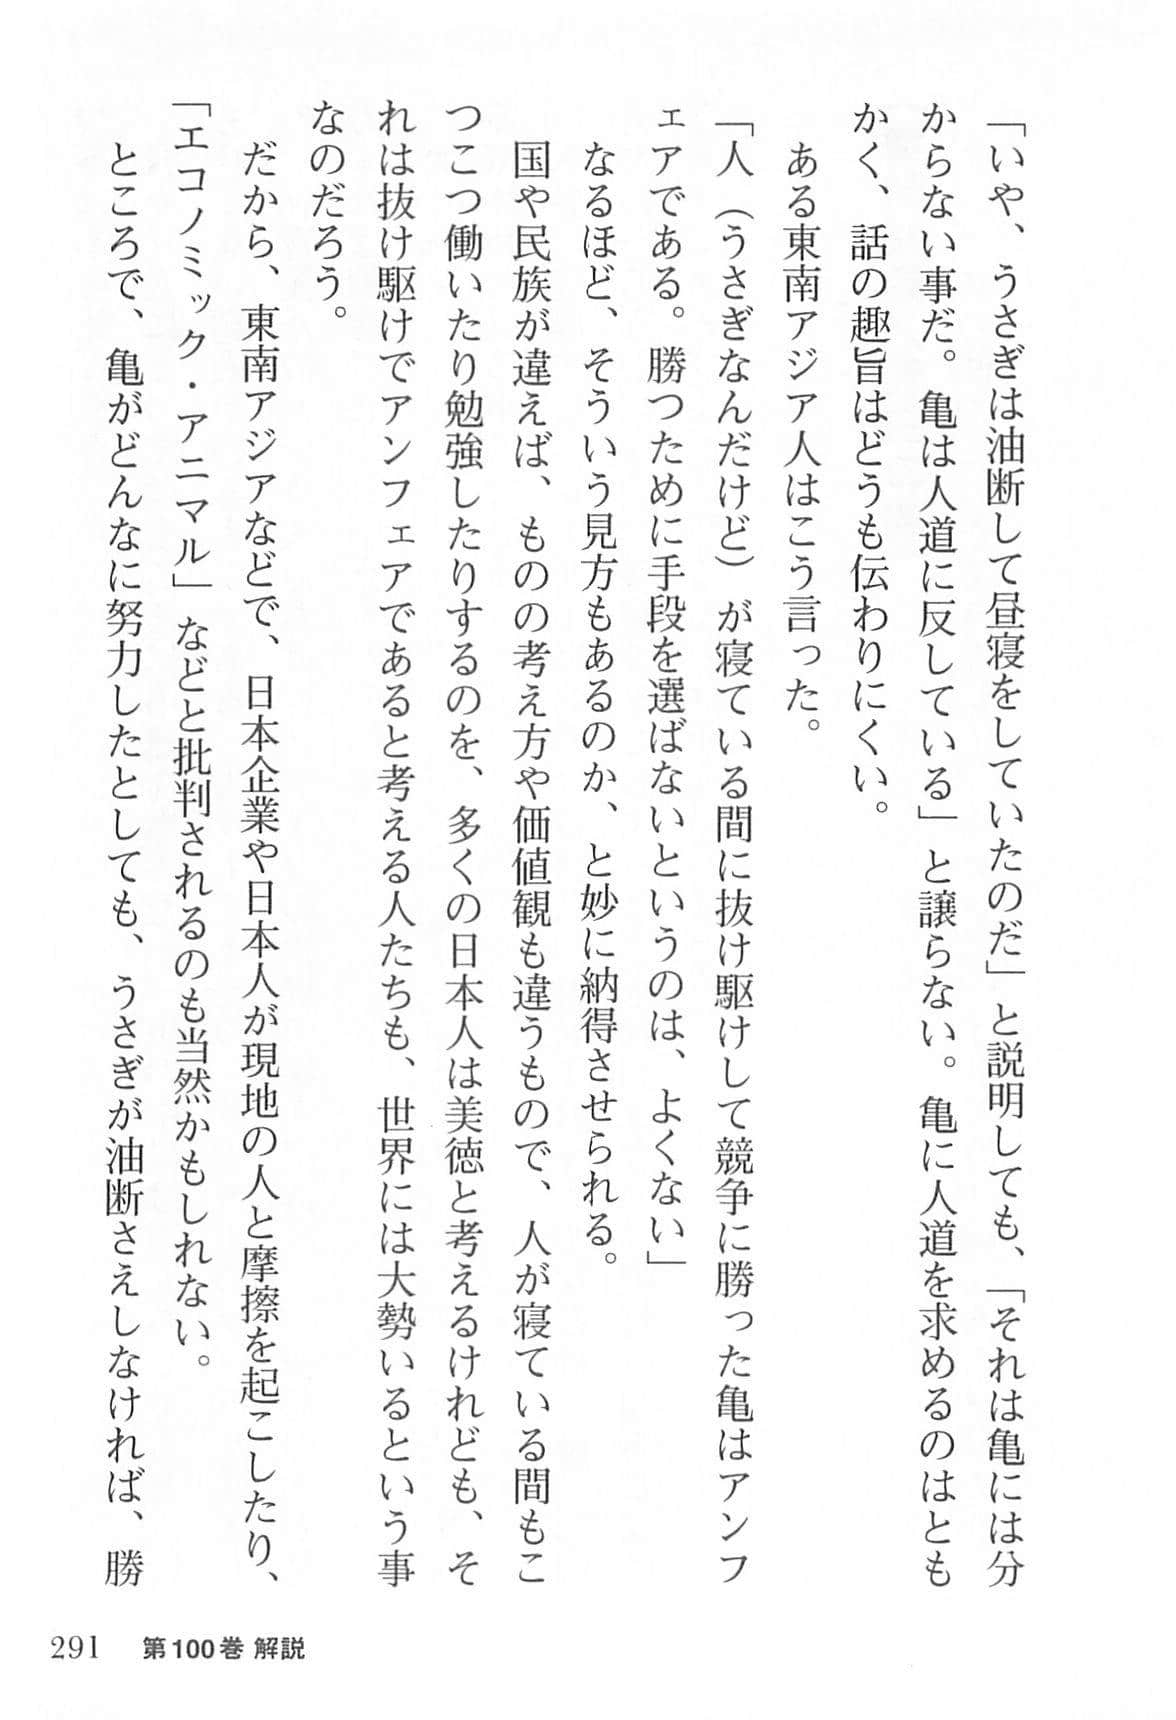 「いや、うさぎは油断して昼寝をしていたのだ」と説明しても、「それは亀には分
からない事だ。亀は人道に反している」と譲らない。亀に人道を求めるのはとも
かく、話の趣旨はどうも伝わりにくい。
ある東南アジア人はこう言った。
「人（うさぎなんだけど）が寝ている間に抜け駆けして競争に勝った亀はアンフ
ェアである。勝つために手段を選ばないというのは、よくない」
なるほど、そういう見方もあるのか、と妙に納得させられる。
国や民族が違えば、ものの考え方や価値観も違うもので、人が寝ている間もこ
つこつ働いたり勉強したりするのを、多くの日本人は美徳と考えるけれども、そ
れは抜け駆けでアンフェアであると考える人たちも、世界には大勢いるという事
なのだろう。
だから、東南アジアなどで、日本企業や日本人が現地の人と摩擦を起こしたり、
「エコノミック・アニマル」などと批判されるのも当然かもしれない。
ところで、亀がどんなに努力したとしても、うさぎが油断さえしなければ、勝
291 第100巻 解説